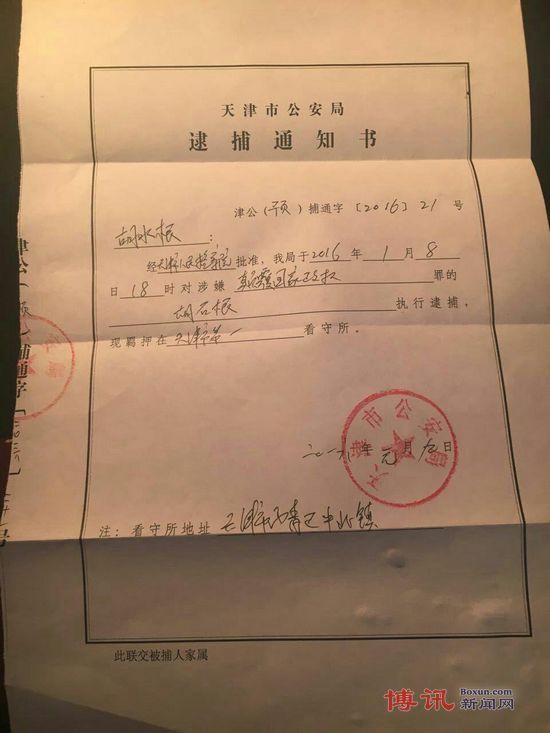 天津市公安局
逮捕通知书
津公（预）捕通字〔2016〕21号
胡水根：
经天津人民检察院批准，我局于2016年1月8
日18时对涉嫌颠覆国家政权罪的
胡石根执行逮捕，
现羁押在天津市第一看守所。
二〇一六年元月 日
天津市公安局
注：看守所地址 天津市西青区中北镇
此联交被捕人家属
捕通字
博讯 Boxun.com 新闻网